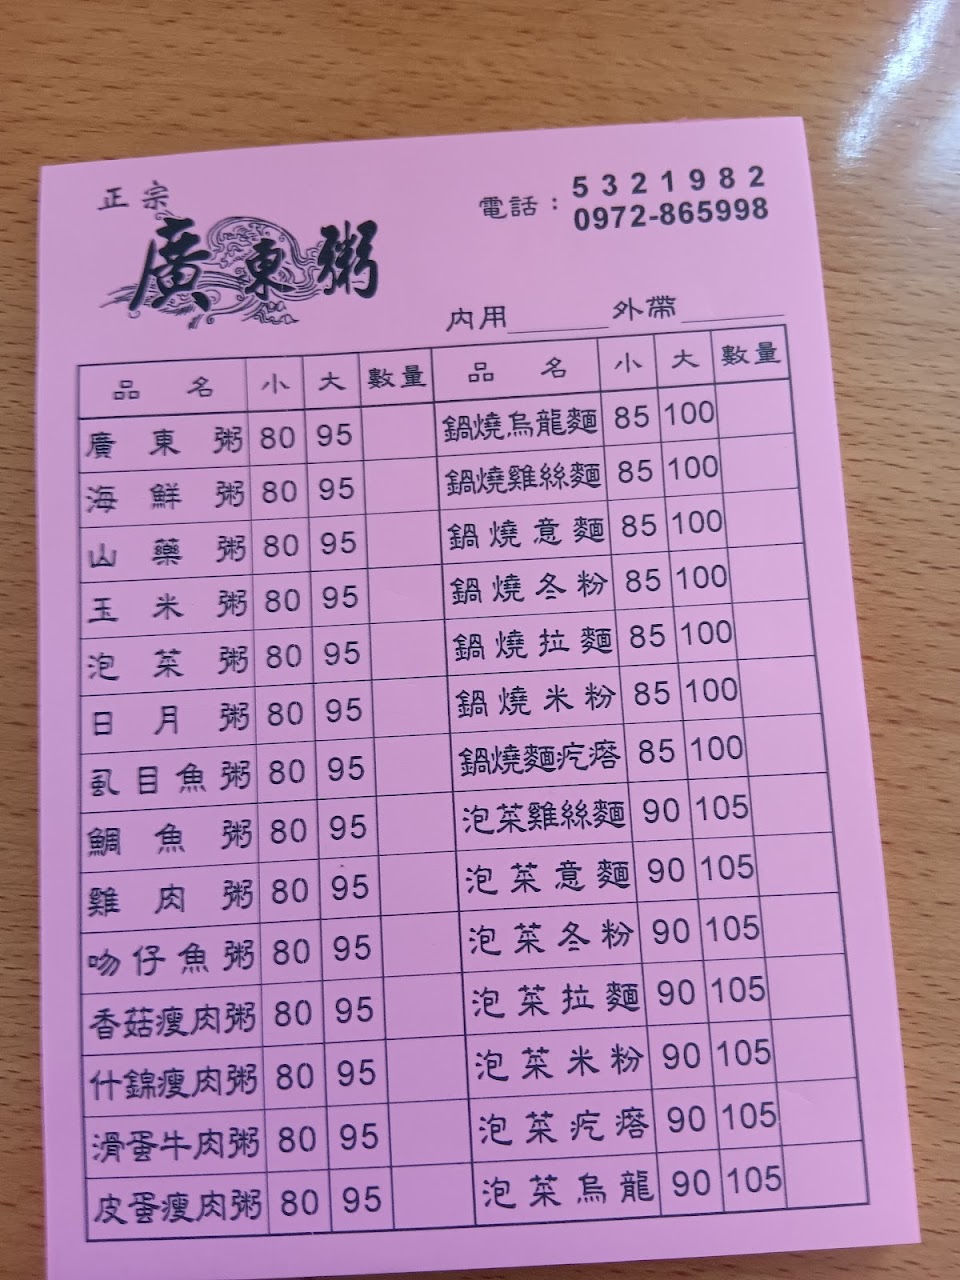 正宗
廣東粥
電話：5321982
0972-865998
內用 外帶
品名 小 大 數量 品名 小 大 數量
廣東粥 80 95 鍋燒烏龍麵 85 100
海鮮粥 80 95 鍋燒雞絲麵 85 100
山藥粥 80 95 鍋燒意麵 85 100
玉米粥 80 95 鍋燒冬粉 85 100
泡菜粥 80 95 鍋燒拉麵 85 100
日月粥 80 95 鍋燒米粉 85 100
虱目魚粥 80 95 鍋燒麵疙瘩 85 100
鯛魚粥 80 95 泡菜雞絲麵 90 105
雞肉粥 80 95 泡菜意麵 90 105
吻仔魚粥 80 95 泡菜冬粉 90 105
香菇瘦肉粥 80 95 泡菜拉麵 90 105
什錦瘦肉粥 80 95 泡菜米粉 90 105
滑蛋牛肉粥 80 95 泡菜疙瘩 90 105
皮蛋瘦肉粥 80 95 泡菜烏龍 90 105